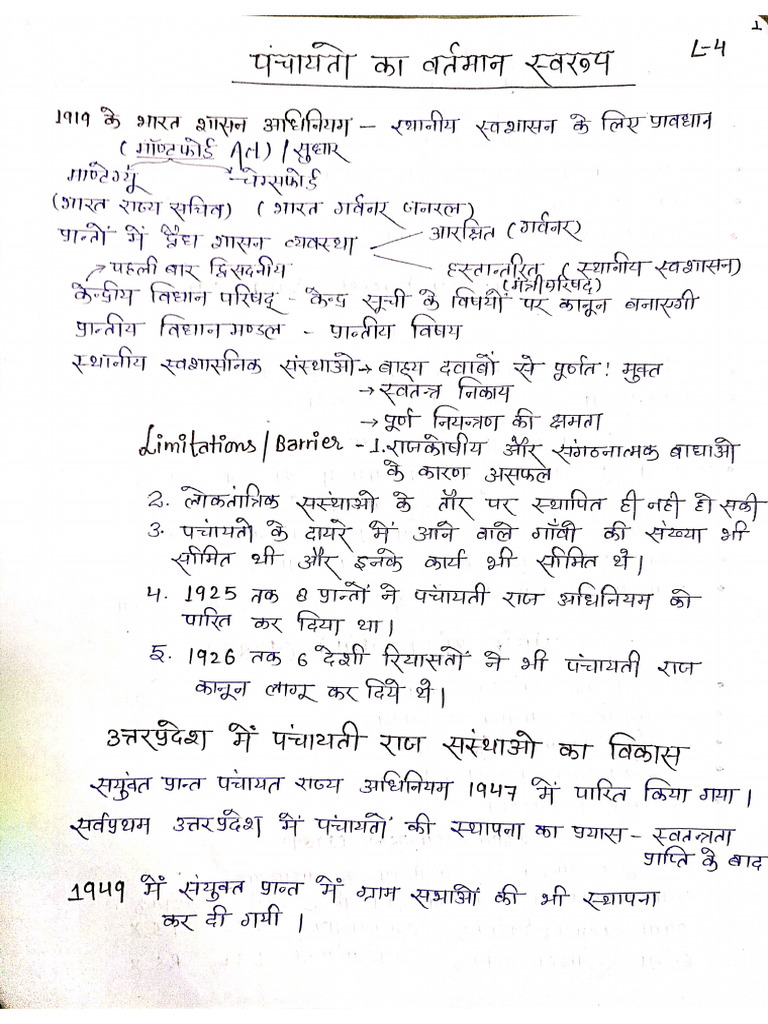 1
L-4
पंचायतो का वर्तमान स्वरूप
1919 के भारत शासन अधिनियम – स्थानीय स्वशासन के लिए प्रावधान
(मॉण्टफोर्ड Act) / सुधार
माण्टेग्यू चेम्सफोर्ड
(भारत राज्य सचिव) (भारत गर्वनर जनरल)
प्रान्तों में द्वैध शासन व्यवस्था आरक्षित (गर्वनर)
→ पहली बार द्विसदनीय हस्तान्तरित (स्थानीय स्वशासन)
(मंत्रीपरिषद)
केन्द्रीय विधान परिषद् - केन्द्र सूची के विषयों पर कानून बनाएगी
प्रान्तीय विधान मण्डल - प्रान्तीय विषय
स्थानीय स्वशासनिक संस्थाओ → बाह्य दवाबों से पूर्णत: मुक्त
→ स्वतन्त्र निकाय
→ पूर्ण नियन्त्रण की क्षमता
Limitations / Barrier - 1. राजकोषीय और संगठनात्मक बाधाओ
के कारण असफल
2. लोकतांत्रिक सस्थाओ के तौर पर स्थापित ही नही हो सकी
3. पचांयतो के दायरे में आने वाले गाँवों की संख्या भी
सीमित थी और इनके कार्य भी सीमित थे।
4. 1925 तक 8 प्रान्तों ने पंचायती राज अधिनियम को
पारित कर दिया था।
5. 1926 तक 6 देशी रियासतों ने भी पंचायती राज
कानून लागू कर दिये थे।
उत्तरप्रदेश में पंचायती राज संस्थाओ का विकास
सयुंक्त प्रान्त पंचायत राज्य अधिनियम 1947 में पारित किया गया।
सर्वप्रथम उत्तरप्रदेश में पंचायतों की स्थापना का प्रयास – स्वतन्त्रता
प्राप्ति के बाद
1949 में संयुक्त प्रान्त में ग्राम सभाओं की भी स्थापना
कर दी गयी ।